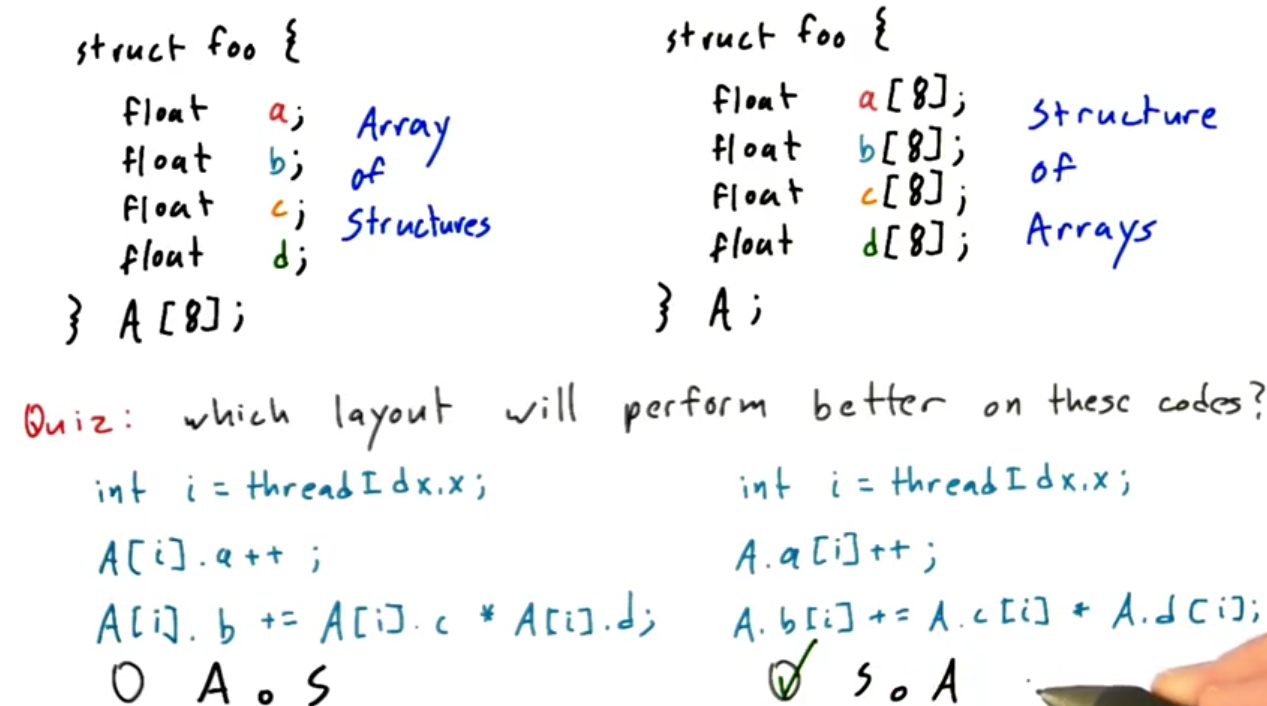 struct foo {
float a;
float b;
float c;
float d;
} A[8];
Array
of
Structures
struct foo {
float a[8];
float b[8];
float c[8];
float d[8];
} A;
Structure
of
Arrays
Quiz: which layout will perform better on these codes?
int i = threadIdx.x;
A[i].a++;
A[i].b += A[i].c * A[i].d;
O A o S
int i = threadIdx.x;
A.a[i]++;
A.b[i] += A.c[i] * A.d[i];
O✓ S o A